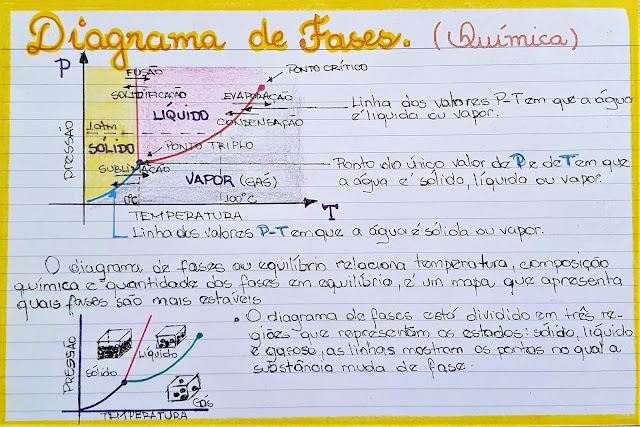 Diagrama de Fases. (Química)
P
PONTO CRÍTICO
FUSÃO
SOLIDIFICAÇÃO
EVAPORAÇÃO
LÍQUIDO
CONDENSAÇÃO
Linha dos valores P-T em que a água
é líquida ou vapor.
PRESSÃO
1atm
SÓLIDO
PONTO TRIPLO
SUBLIMAÇÃO
Ponto do único valor de P e de T em que
a água é sólida, líquida ou vapor.
VAPOR (GÁS)
0°C
100°C
T
TEMPERATURA
Linha dos valores P-T em que a água é sólida ou vapor.
O diagrama de fases ou equilíbrio relaciona temperatura, composição
química e quantidade das fases em equilíbrio, é um mapa que apresenta
quais fases são mais estáveis
• O diagrama de fases está dividido em três re-
giões que representam os estados: sólido, líquido
e gasoso, as linhas mostram os pontos no qual a
substância muda de fase.
PRESSÃO
Sólido
Líquido
Gás
TEMPERATURA